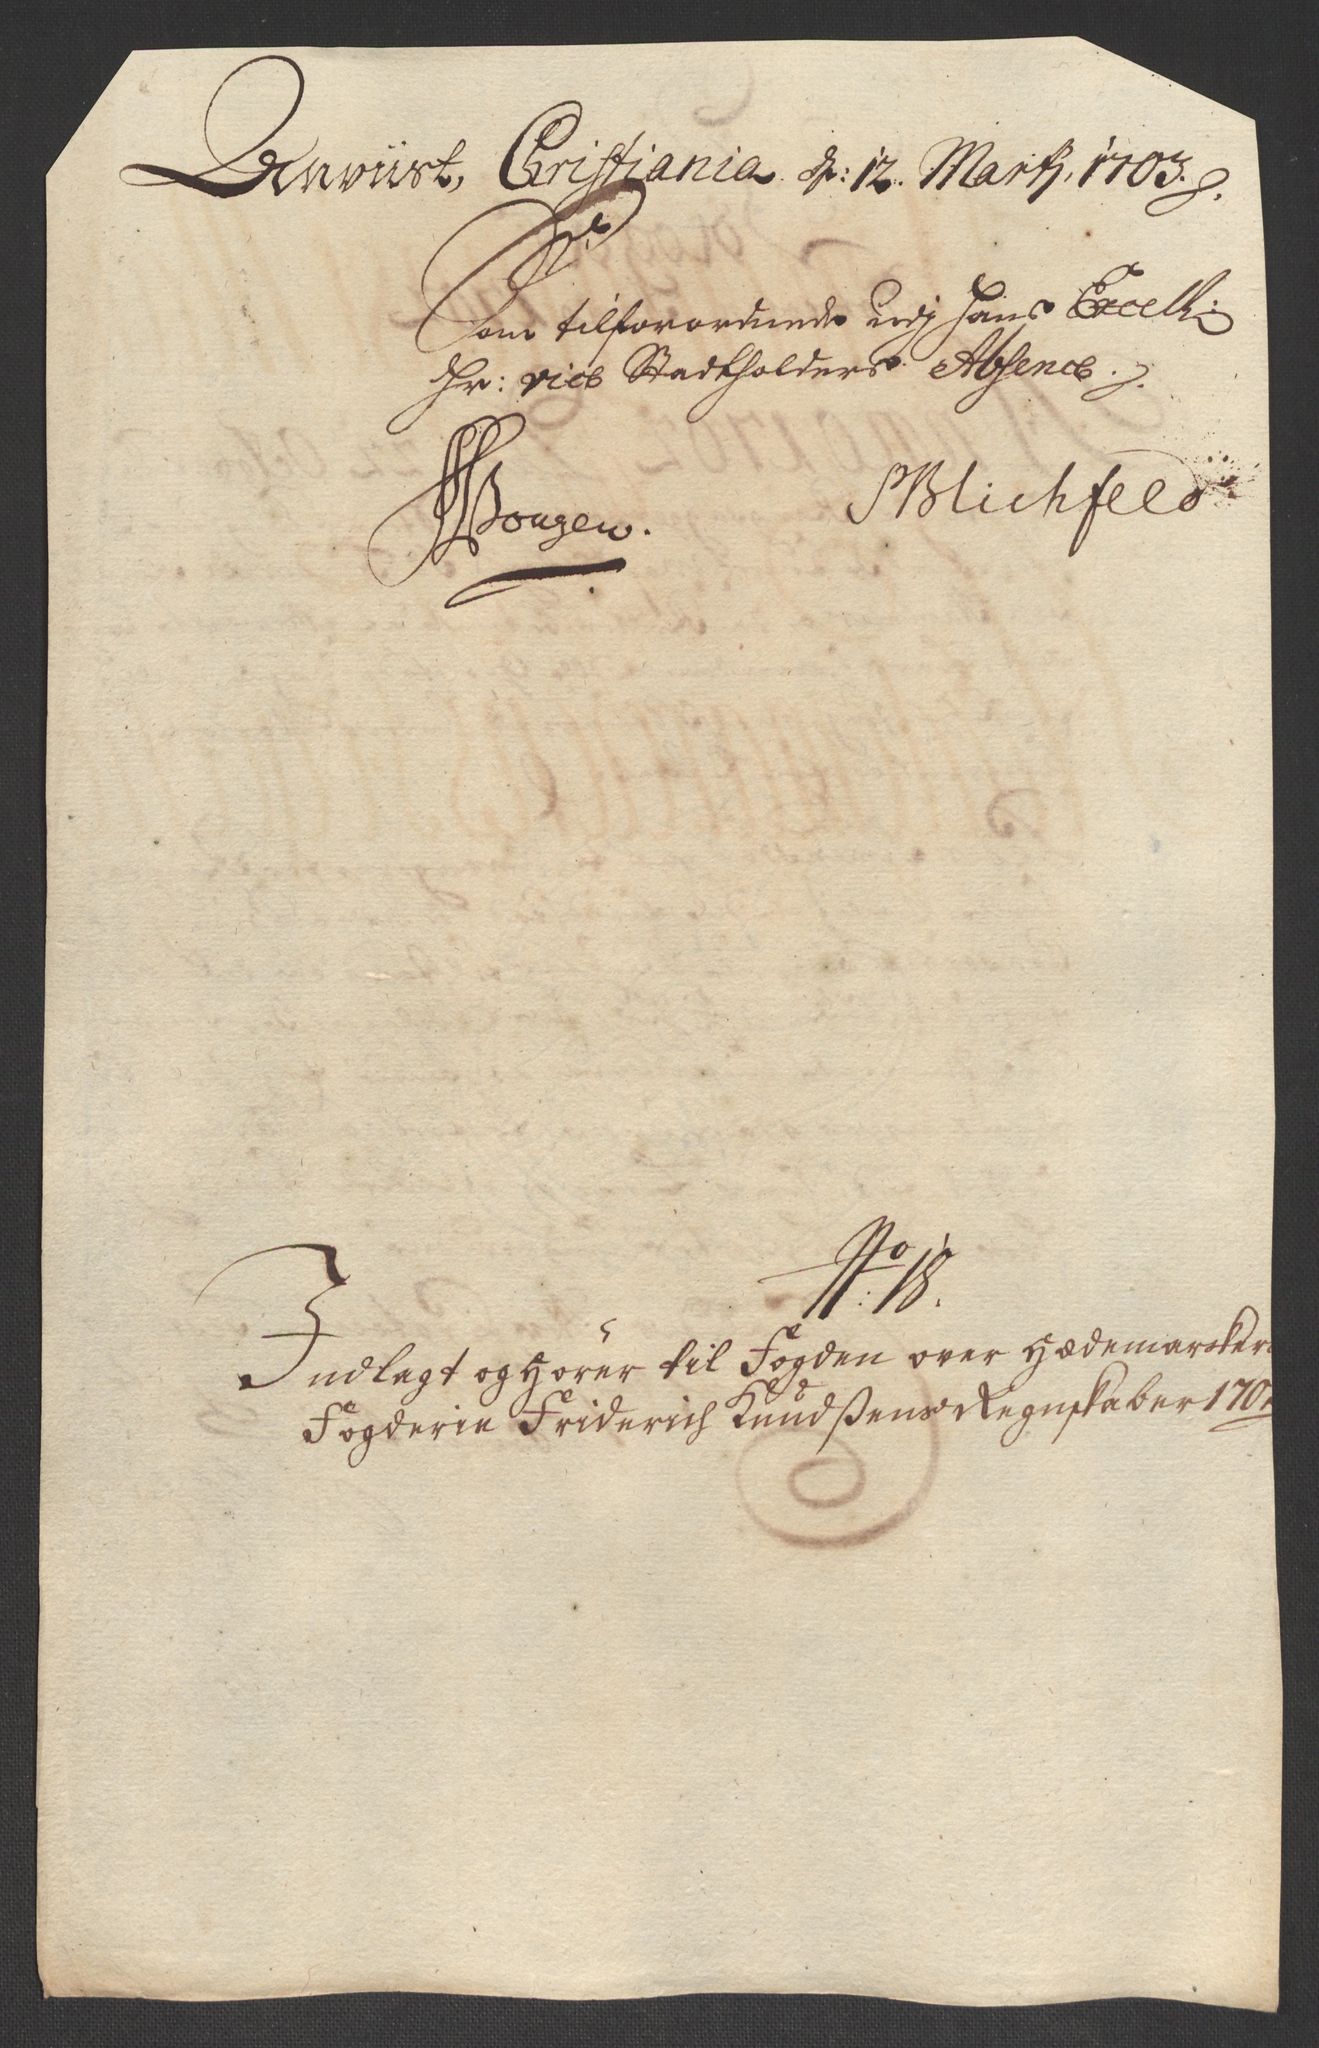 Anviist, Christiania d: 12. Martz. 1703.
Som tilforordnede udj Hans Excell:
Hr: vice Stadtholders Absence.
PBlichfeld
No: 18.
Indlagt og Hörer til Fogden over Hædemarckens
Fogderie Friderich Knudssens Regnskaber 1702